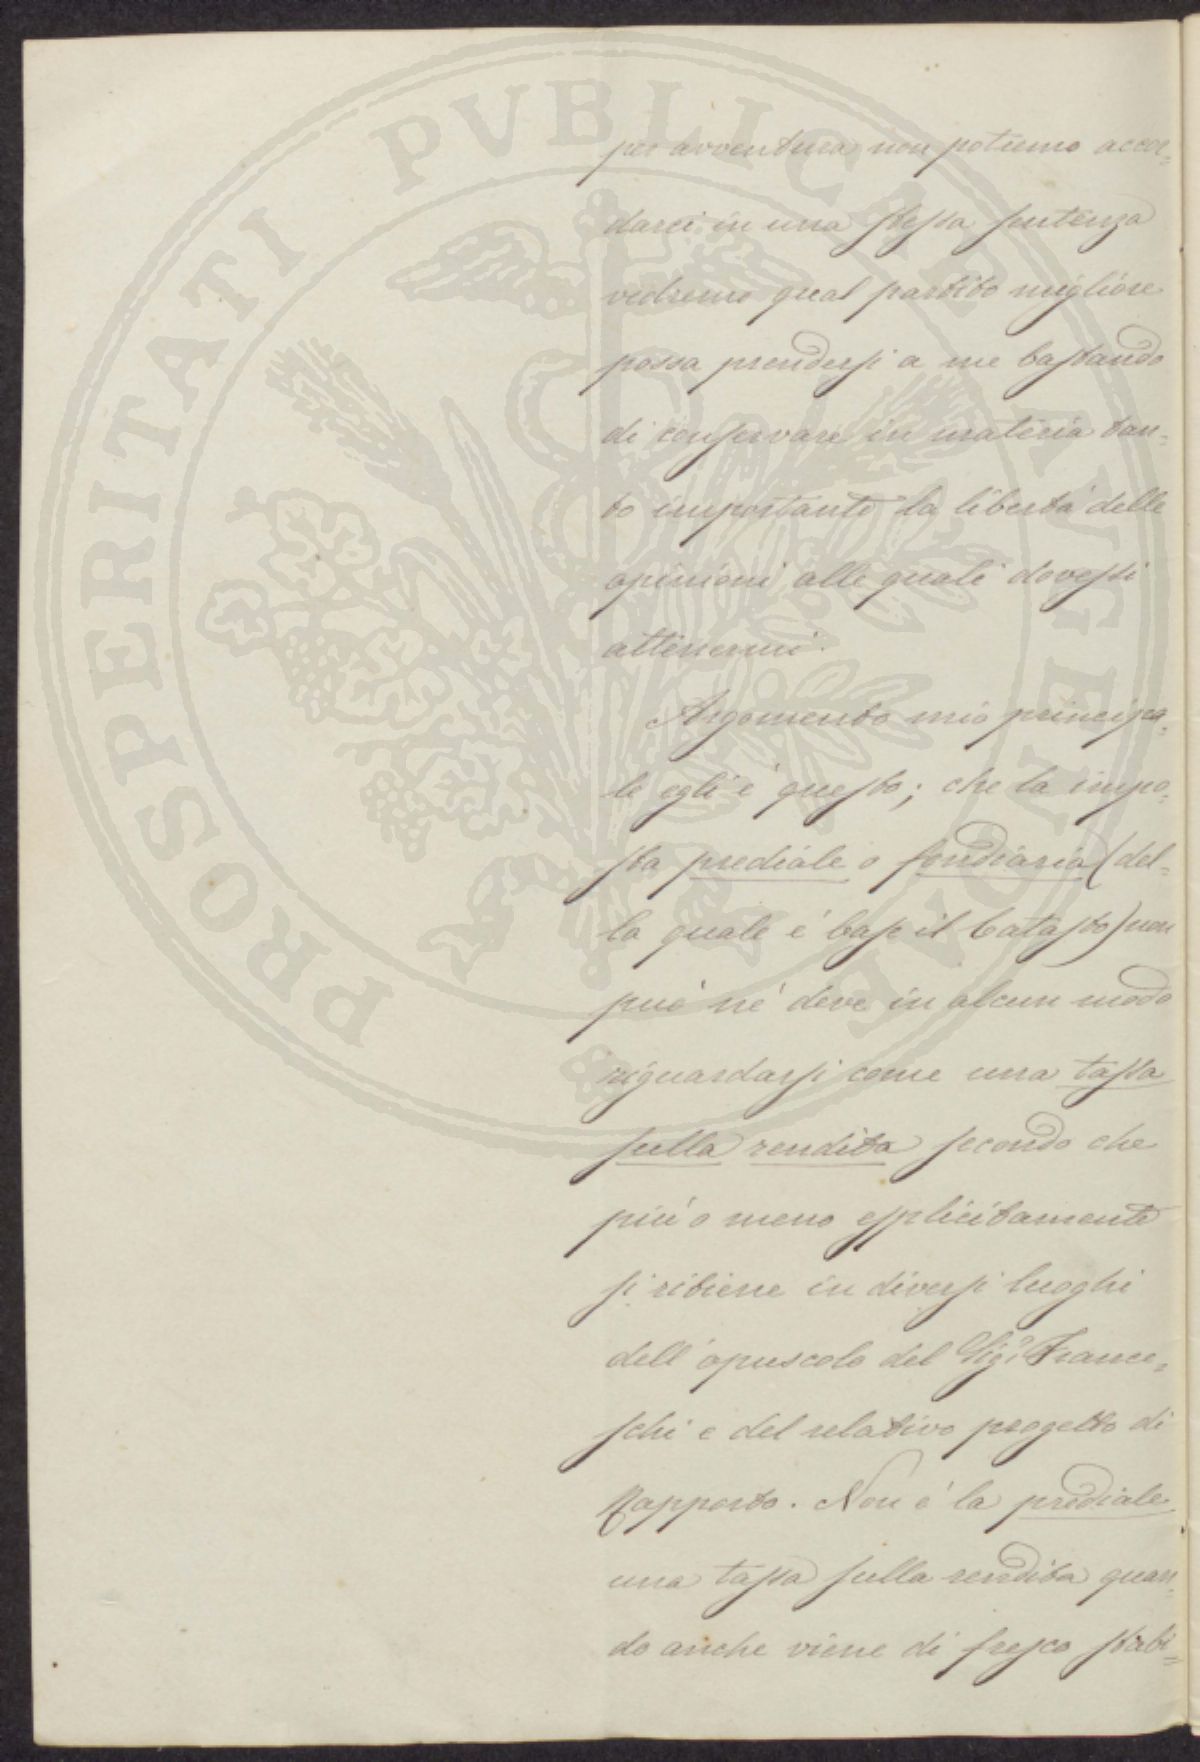 PROSPERITATI PVBLICAE AVGENDAE
per avventura non potremo accor=
darci in una stessa sentenza
vedremo qual partito migliore
possa prendersi a me bastando
di conservare in materia tan=
to importante la libertà delle
opinioni alle quali dovessi
attenermi.
Argomento mio principa=
le egli è questo; che la impo=
sta prediale o fondiaria (del=
la quale è base il Catasto) non
può nè deve in alcun modo
riguardarsi come una tassa
sulla rendita secondo che
più o meno esplicitamente
si ritiene in diversi luoghi
dell'opuscolo del Sigr. France=
schi e del relativo progetto di
Rapporto. Non è la prediale
una tassa sulla rendita quan=
do anche viene di fresco stabi=